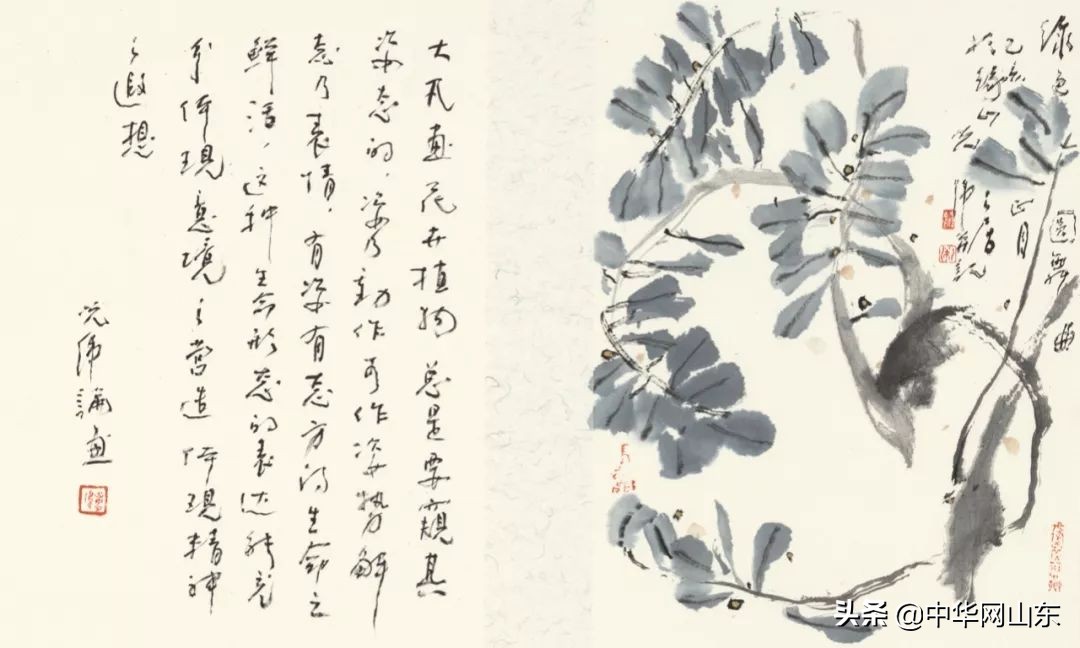 绿色圆舞曲
正月
大凡画花卉植物总是要窥其
姿态的，姿乃动作可作姿势解
态乃表情，有姿有态方得生命之
鲜活，这种生命形态的表达能充
分体現意境之营造 体現精神
之遐想
头条 @中华网山东